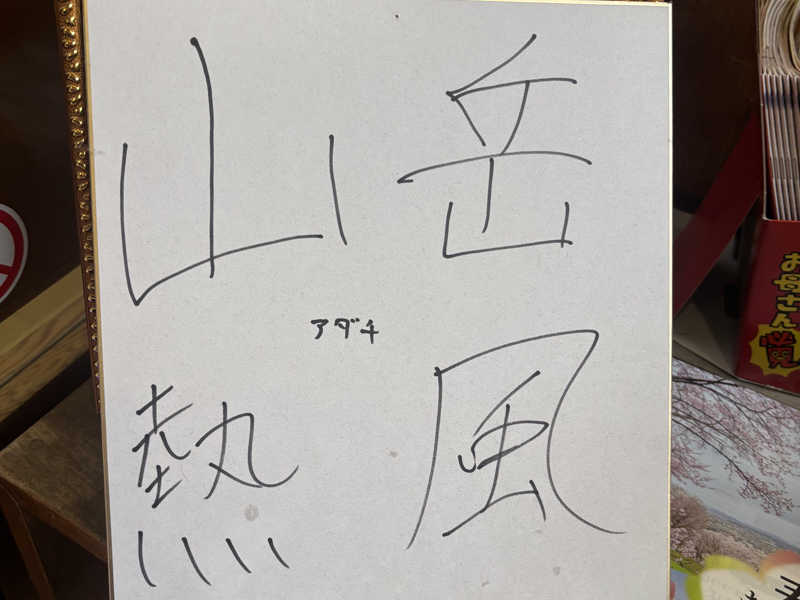 山岳
アダチ
熱風
お母さん